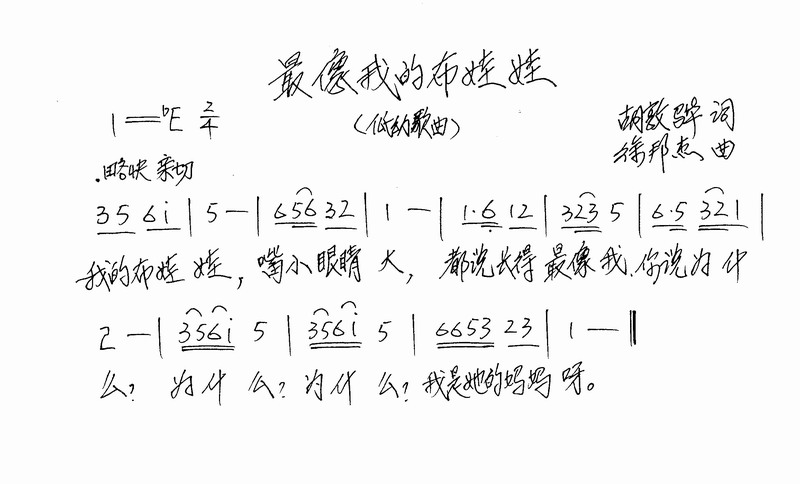 最像我的布娃娃
1=♭E 2/4
(低幼歌曲)
胡敦骅 词
徐邦杰 曲
.略快 亲切
35 6i | 5 — | 656 32 | 1 — | 1·6 12 | 323 5 | 6·5 321 |
我的布娃 娃, 嘴小眼睛 大, 都说长得 最像我.你说为什
2 — | 356i 5 | 356i 5 | 6653 23 | 1 — ‖
么? 为什 么? 为什 么? 我是她的妈妈 呀。